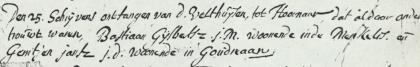 Den 25. Schrijvens ontfangen van d. Velthuijsen, tot Hoornaar, dat aldaar onder
trouwt waren, Bastiaan Gijsbertz j.M. woonende inde Minkelos. en
Gentien Jansz j.d. Woonende in Goudriaan.